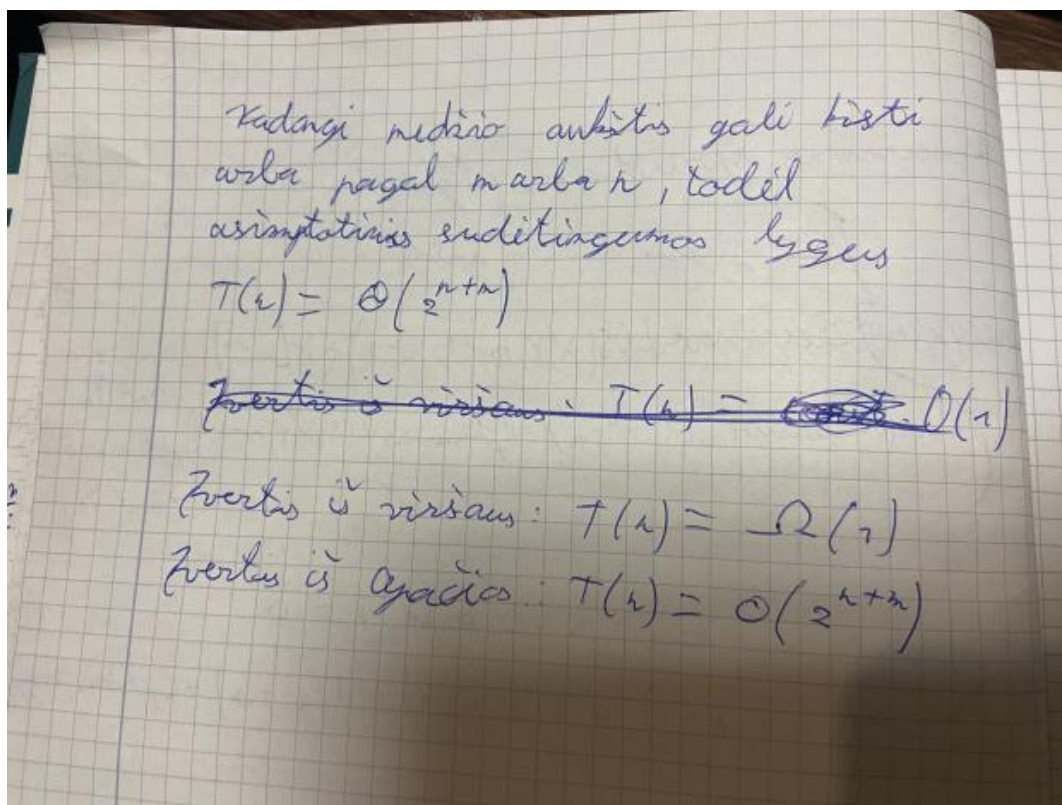 Kadangi medžio aukštis gali būsti
arba pagal m arba n, todėl
asimptotinis sudėtingumas lygus
T(n) = Θ(2^{n+m})
Įvertis iš viršaus: T(n) = O(1)
Įvertis iš viršaus: T(n) = Ω(1)
Įvertis iš apačios: T(n) = O(2^{n+m})